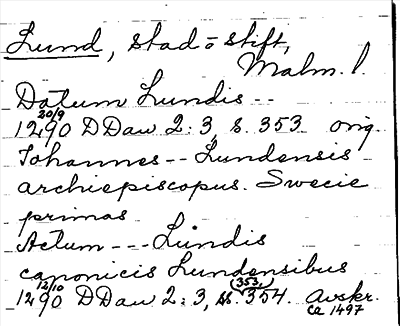 Lund, stad o stift,
Malm. l.
Datum Lundis --
20/9
1290 DDan 2:3, s. 353 orig.
Johannes -- Lundensis
archiepiscopus. Swecie
primas
Actum --- Lundis
canonicis Lundensibus
12/10 353,
1290 DDan 2:3, ss. 354. Avskr.
ca 1497